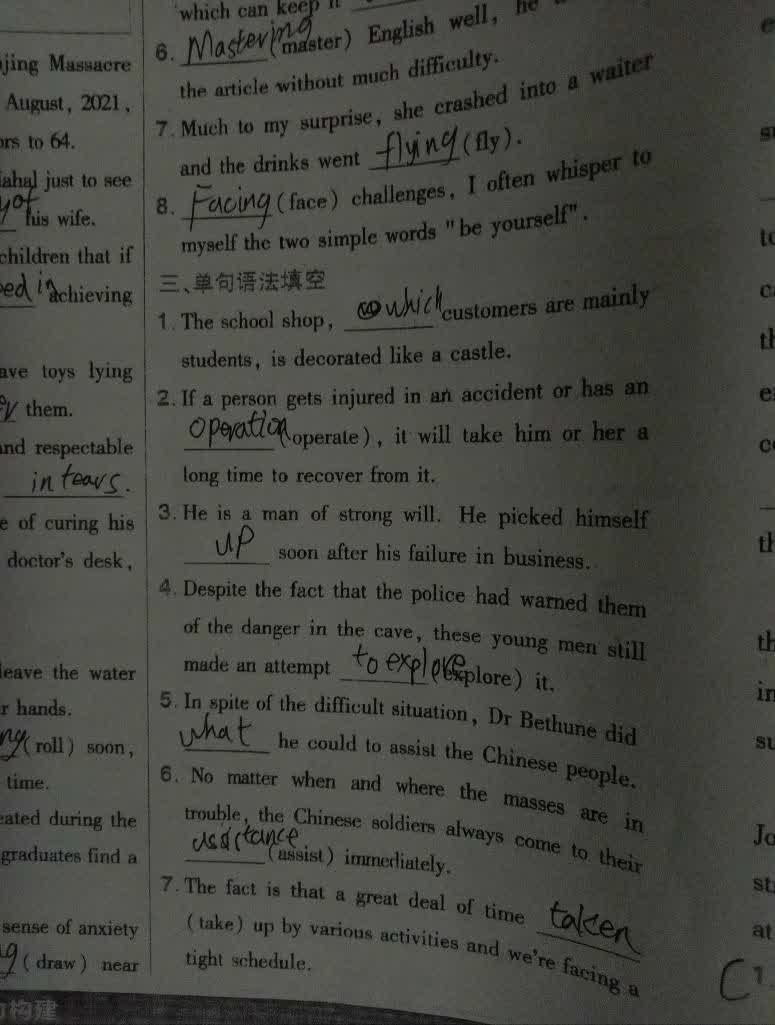 jing Massacre
August, 2021,
ors to 64.
ahal just to see
his wife.
children that if
ped in achieving
ave toys lying
them.
and respectable
in tears.
e of curing his
doctor's desk,
leave the water
r hands.
ng (roll) soon,
time.
eated during the
graduates find a
sense of anxiety
g (draw) near
构建
which can keep it
6. Mastering (master) English well, he
the article without much difficulty.
7. Much to my surprise, she crashed into a waiter
and the drinks went flying (fly).
8. Facing (face) challenges, I often whisper to
myself the two simple words "be yourself".
三、单句语法填空
1. The school shop, which customers are mainly
students, is decorated like a castle.
2. If a person gets injured in an accident or has an
operation (operate), it will take him or her a
long time to recover from it.
3. He is a man of strong will. He picked himself
up soon after his failure in business.
4. Despite the fact that the police had warned them
of the danger in the cave, these young men still
made an attempt to explore (explore) it.
5. In spite of the difficult situation, Dr Bethune did
what he could to assist the Chinese people.
6. No matter when and where the masses are in
trouble, the Chinese soldiers always come to their
assistance (assist) immediately.
7. The fact is that a great deal of time taken
(take) up by various activities and we're facing a
tight schedule.